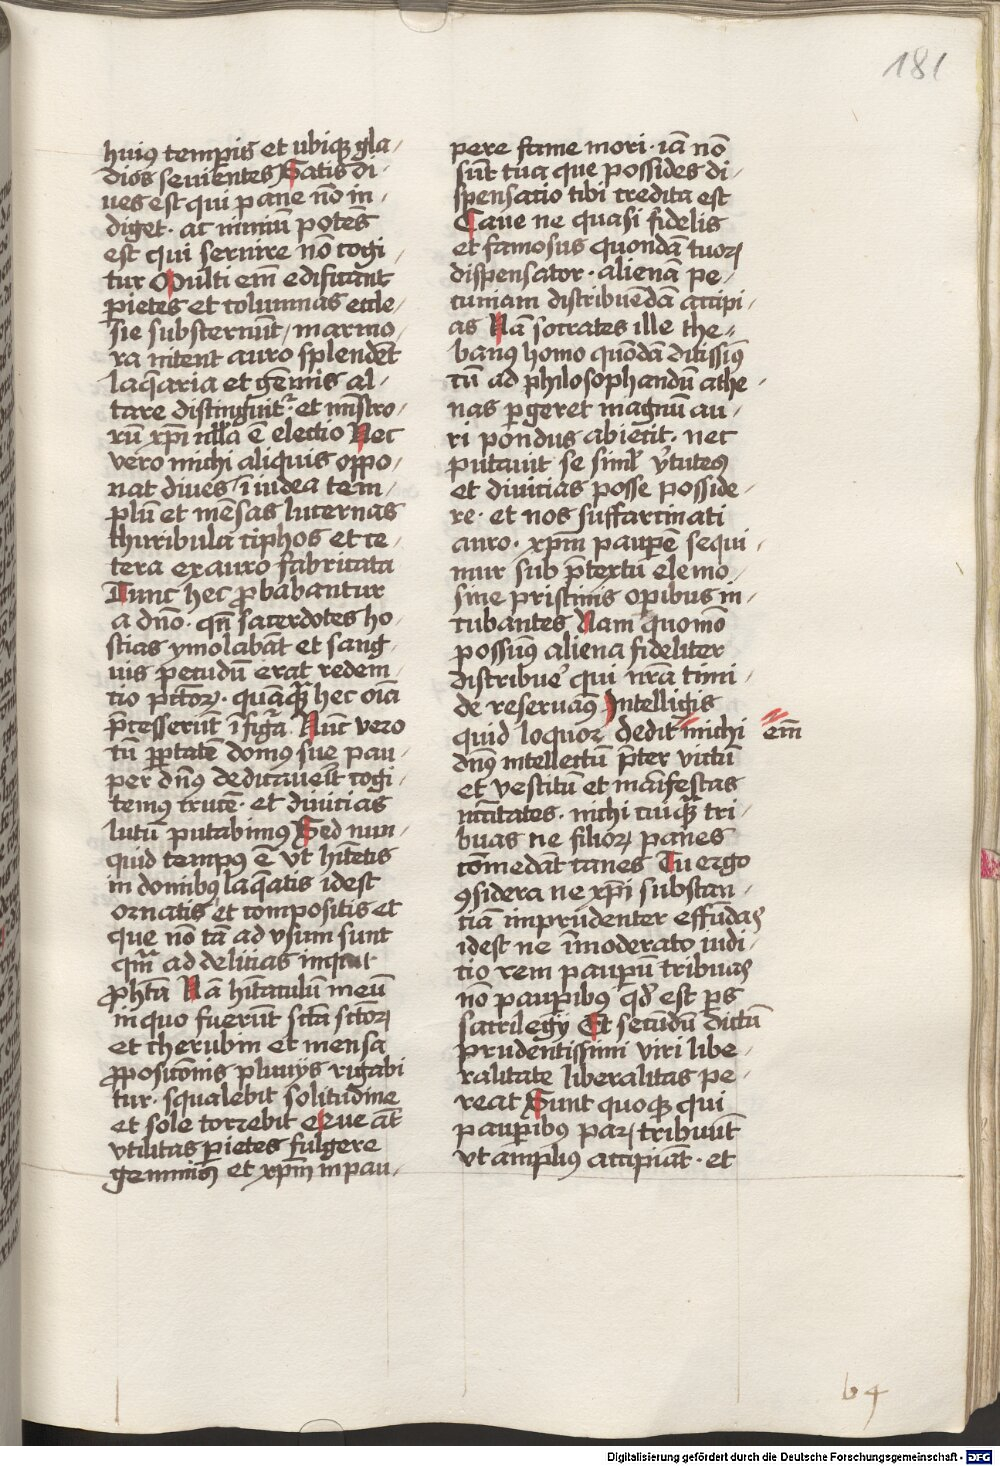 181
huiꝰ temꝑis et ubiqꝫ gla/
dios seuientes Satis di/
ues est qui pane nō in/
diget · ac nimiū potēs
est qui seruire nō cogi/
tur Multi eīm edificant
ꝑietes et columnas eccle/
sie substernūt / marmo/
ra nitent auro splendēt
laq̄aria et gēmis al/
tare distinguit᷑ · et mīstro/
rū xp̄i nĺla ē electio Nec
vero michi aliquis oppo/
nat diues / ī iudea tem/
plū et mēsas lucernas
thuribula ciphos et ce/
tera ex auro fabricata
Tunc hec ꝓbabantur
a dn̄o · qn̄ sacerdotes ho/
stias ymolabāt et sang/
uis pecudū erat redem/
tio pc̄torꝝ · quāqꝫ hec oīa
p̄cesserūt ī figͣa · Nūc vero
cū pꝑtatē domꝰ sue pau/
per dn̄ꝰ dedicauerīt cogi/
temꝰ crucē · et diuicias
lutū putabimꝰ Sed nun/
quid tempꝰ ē vt hītetis
in domibꝰ laq̄atis idest
ornatis et compositis et
que nō tā ad vsum sunt
qͫ ad delicias inquit
ꝓphēta Nā hītatulū meū
in quo fuerūt sctā sctōrꝝ
et cherubin et mensa
ꝓposicōnis pluuijs rigabi
tur · squalebit solitudine
et sole torrebit eque aūt
vtilitas ꝑietes fulgere
gemmis et xp̄m in pau/
pere fame mori · iā nō
sūt tua que possides di/
spensatio tibi credita est
Caue ne quasi fidelis
et famosus quondā tuorꝝ
dispensator · alienā pe/
cuniam distribuēdā accipi/
as Nā socrates ille the/
banꝰ homo quōdā ditissimꝰ
cū ad philosophandū athe/
nas ꝑgeret magnū au/
ri pondus abiecit · nec
putauit se simĺ v̓tutes
et diuicias posse posside/
re · et nos suffarcinati
auro · xp̄m pauꝑē sequi/
mur sub p̄textu elemo/
sine pristinis opibus in/
cubantes Nam quomō
possumꝰ aliena fideliter
distribue᷑ qui nr̄a timi/
de reseruamꝰ Intelligis
quid loquor dedit michi eīm
dn̄ꝰ intellectū p̄ter victū
et vestitū et manifestas
nc̄citates · michi cuiqꝫ tri/
buas ne filiorꝝ panes
cōmedāt canes Tu ergo
ꝯsidera ne xp̄i substan/
tiā imprudenter effūdas
idest ne īmoderato iudi/
cio rem pauꝑū tribuas
nō pauꝑibꝰ qd̓ est ps̄
sacrilegij Et secūdū dictū
prudentissimi viri libe/
ralitate liberalitas pe/
reat Sunt quoqꝫ qui
pauꝑibꝰ parꝝ tribuūt
vt ampliꝰ accipiāt · et
b 4
Digitalisierung gefördert durch die Deutsche Forschungsgemeinschaft - DFG